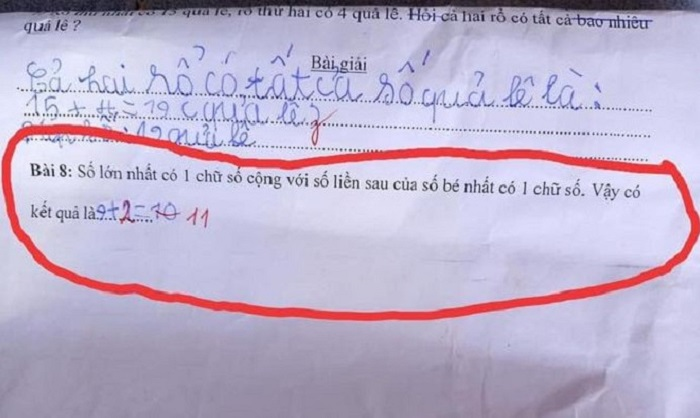 có 15 quả lê, rổ thứ hai có 4 quả lê. Hỏi cả hai rổ có tất cả bao nhiêu
quả lê ?
Bài giải
Cả hai rổ có tất cả số quả lê là:
15 + 4 = 19 ( quả lê )
19 quả lê
Bài 8: Số lớn nhất có 1 chữ số cộng với số liền sau của số bé nhất có 1 chữ số. Vậy có
kết quả là 9+2=10 11